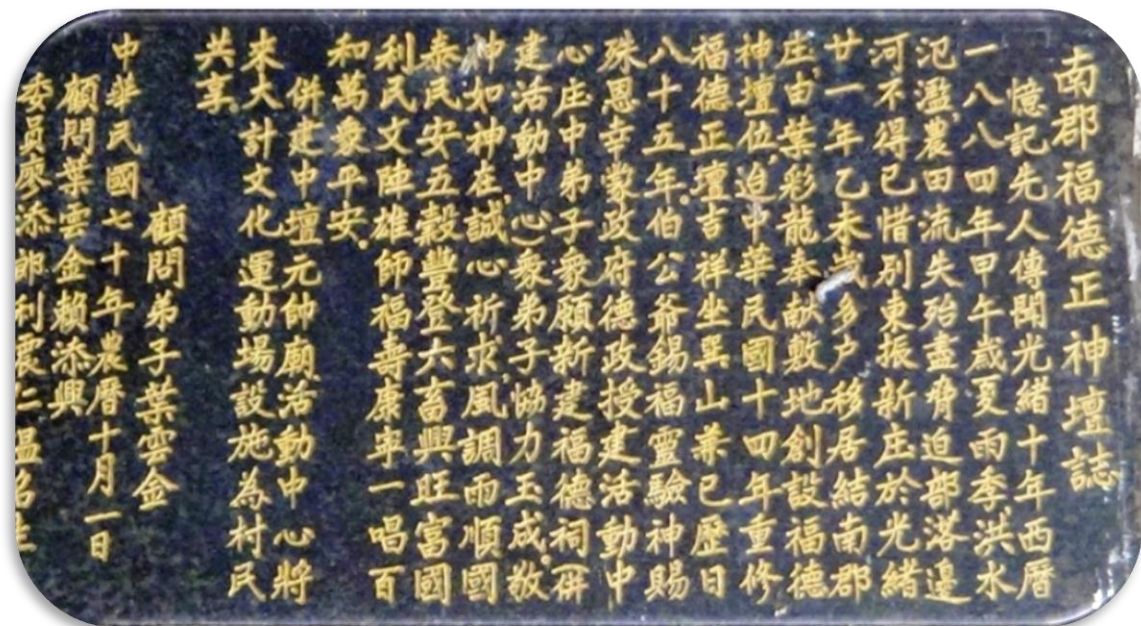 南郡福德正神壇誌
憶記先人傳聞光緒十年西曆
一八八四年甲午歲夏雨季洪水
氾濫農田流失殆盡脅迫部落邊
河不得已惜別東振新庄於光緒
廿一年乙未歲多户移居結南郡
庄由葉彩龍奉献敷地創設福德
神壇位迫中華民國十四年重修
福德正壇吉祥坐巽山兼巳歷日
八十五年伯公爺錫福靈驗神賜
殊恩幸蒙政府德政授建活動中
心庄中弟子衆願新建福德祠併
建活動中心衆弟子協力玉成敬
神如神在誠心祈求風調雨順國
泰民安五穀豐登六畜興旺富國
利民文陣雄師福壽康寧一唱百
和萬衆平安
併建中壇元帥廟活動中心將
來大計文化運動場設施為村民
共享
顧問弟子葉雲金
中華民國七十年農曆十月一日
顧問葉雲金賴添興
委員廖添郎利